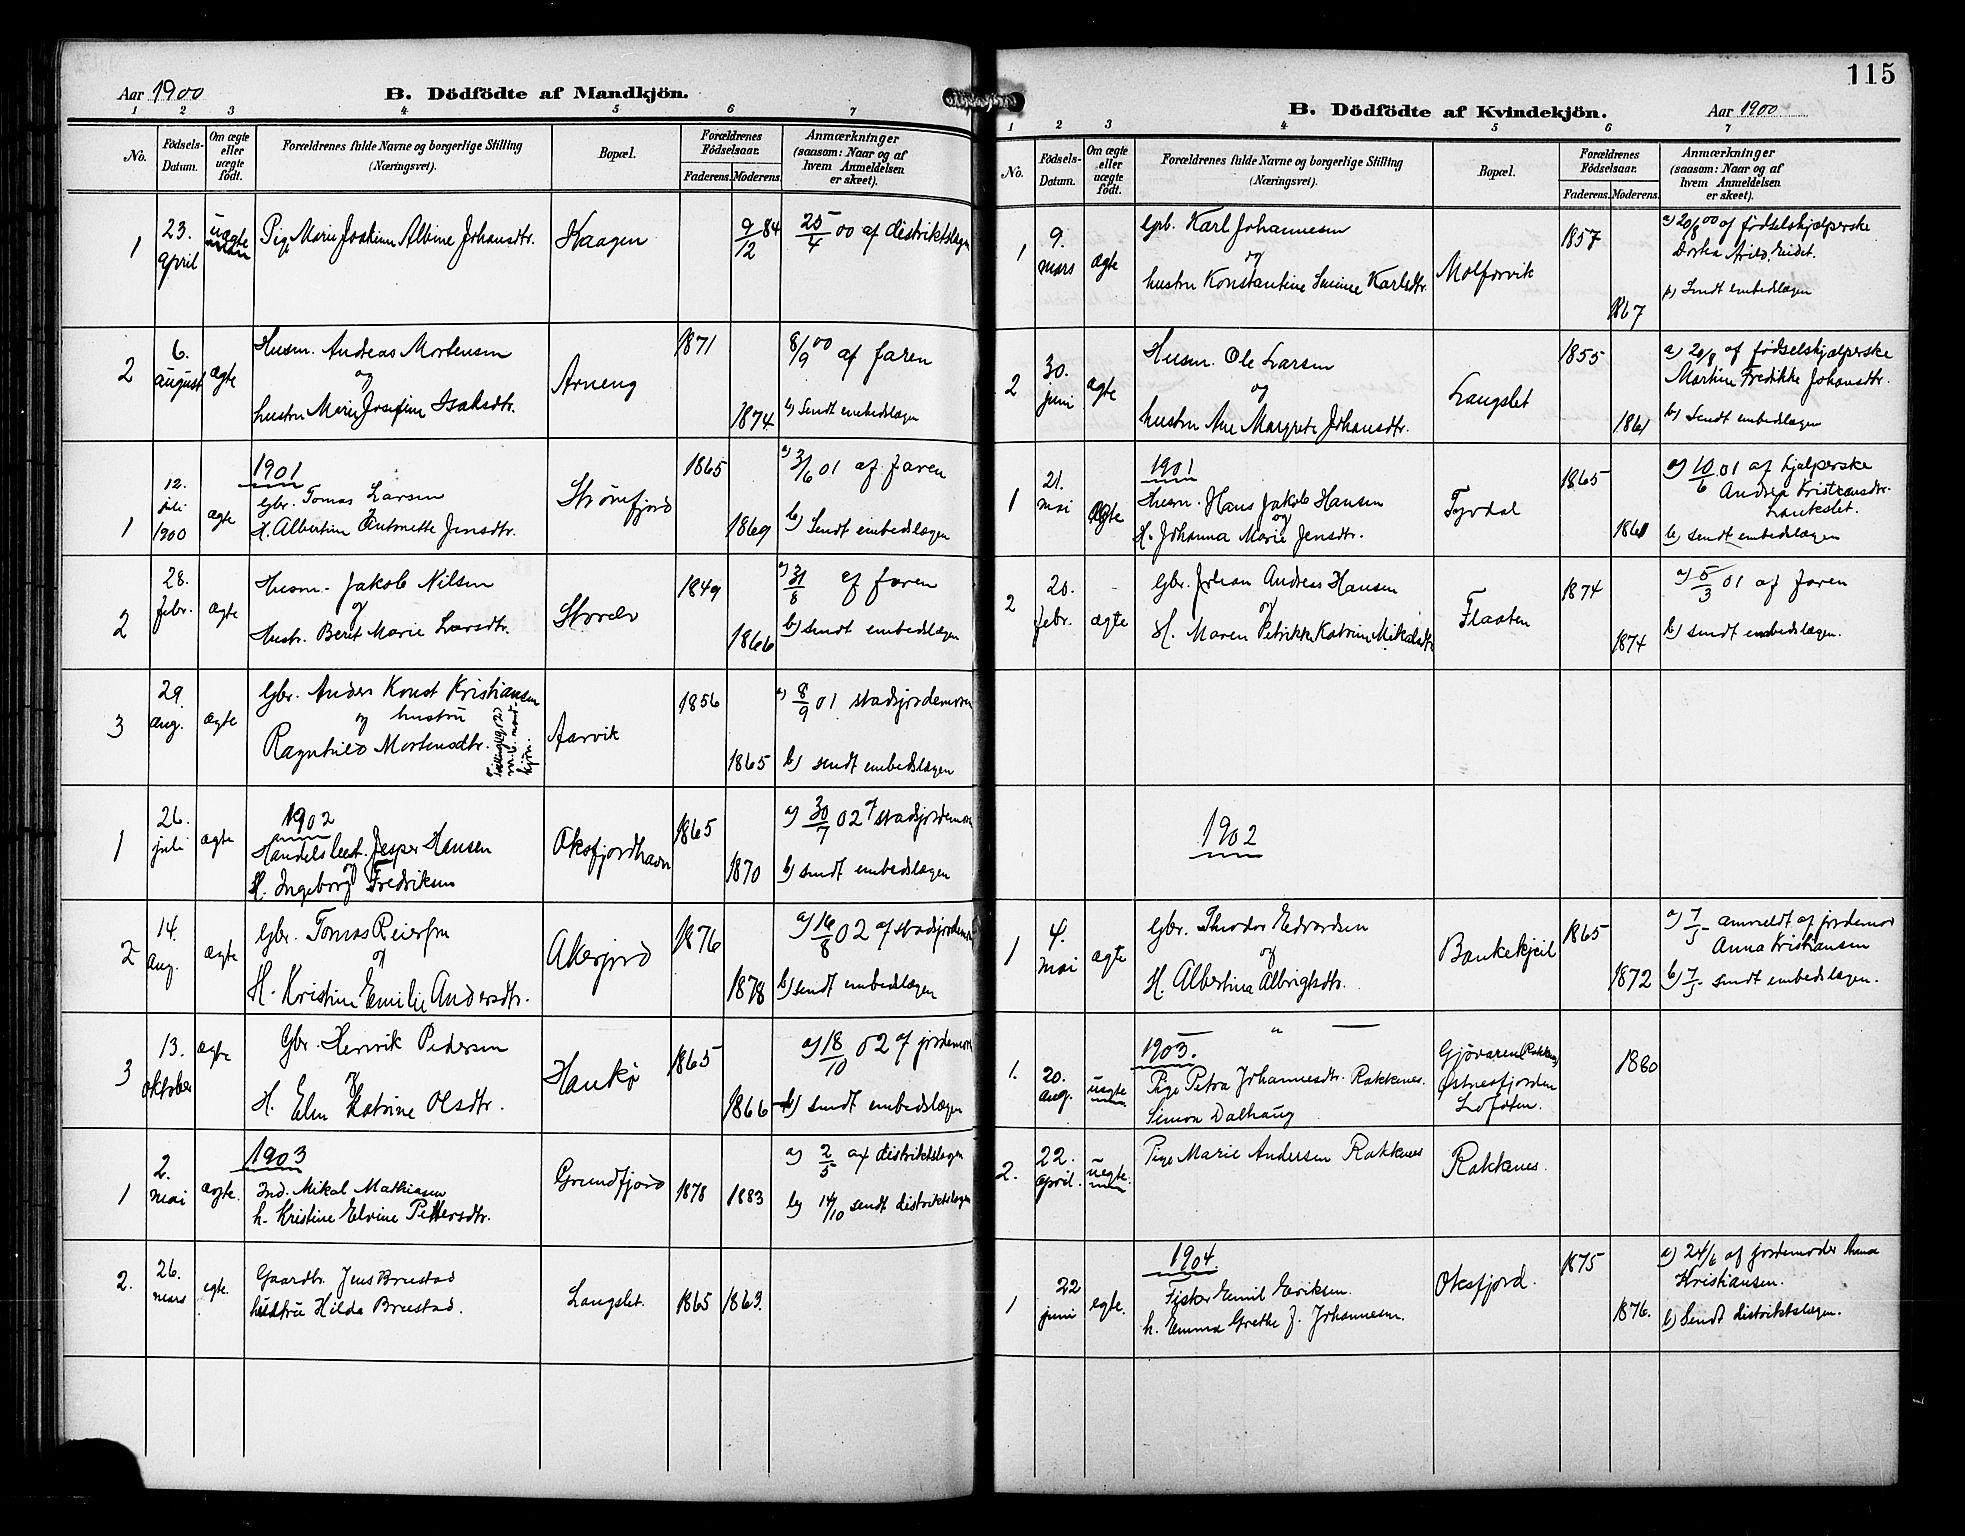 Aar 1900
B. Dödfödte af Mandkjön.
1 2 3 4 5 6 7
No.
Födsels-Datum.
Om ægte eller uægte födt.
Forældrenes fulde Navne og borgerlige Stilling (Næringsvei).
Bopæl.
Forældrenes Födselsaar.
Faderens. Moderens.
Anmærkninger (saasom: Naar og af hvem Anmeldelsen er skeet).
1 23. april uægte Pige Marie Joakime Albine Johansdtr. Kaagen 9/12 84 25/4 00 af distriktslægen
2 6. august ægte Husm. Andreas Mortensen 1871 8/9 00 af faren
og
hustru Marie Josefine Isaksdtr. Arneng 1874 b) Sendt embedslægen
1901
1 12. juli 1900 ægte Gbr. Tomas Larsen Strømfjord 1865 a) 3/6 01 af faren
H. Albertine Antonette Jensdtr. 1869 b) Sendt embedslægen
2 28. febr. ægte Husm. Jakob Nilsen 1849 a) 31/8 af faren
og
Hustr. Berit Marie Larsdtr. Storelv 1866 b) sendt embedslægen
3 29. aug. ægte Gbr. Anders Konst Kristiansen 1856 a) 8/9 01 stadsjordemoren
og hustru
Ragnhild Mortensdtr. Aarvik 1865 b) sendt embedslægen
1902
1 26. juli ægte Handelsbest. Jesper Hansen Oksfjordhavn 1865 a) 30/7 02 af stadsjordemoren
og
H. Ingeborg Fredriksen 1870 b) sendt embedslægen
2 14. Aug. ægte Gbr. Tomas Peiersen 1876 a) 16/8 02 af stadsjordemoren
og
H. Kristine Emilie Andersdtr. 1878 b) sendt embedslægen
3 13. oktober ægte Gbr. Henrik Pedersen 1865 a) 18/10 02 af jordemoren
og
H. Elen Katrine Olsdtr. Haukø 1866 b) sendt embedslægen
1903
1 2. mai ægte. Ind. Mikal Mathiasen Grundfjord 1878 1883 a) 2/5 af distriktslægen
h. Kristine Elvine Pettersdtr. b) 14/10 sendt distriktslægen
2. 26. mars egte. Gaardbr. Jens Bruestad
hustru Hilda Bruestad. Langslet. 1865 1863.
115
B. Dödfödte af Kvindekjön.
Aar 1900
1 2 3 4 5 6 7
No.
Födsels-Datum.
Om ægte eller uægte födt.
Forældrenes fulde Navne og borgerlige Stilling (Næringsvei).
Bopæl.
Forældrenes Födselsaar.
Faderens. Moderens.
Anmærkninger (saasom: Naar og af hvem Anmeldelsen er skeet).
1 9. mars ægte Gbr. Karl Johannesen 1857 a) 20/8 00 af fødselshjælperske
og
hustru Konstantine Karlsdtr. 1867 b) Sendt embedslægen
2 30. juni ægte Husm. Ole Larsen 1855 a) 20/8 af fødselshjælperske
og Martine Fredikke Johansdtr.
hustru Ane Margrete Johansdtr. Langslet 1861 b) Sendt embedslægen
1901
1 21. mai ægte Husm. Hans Jakob Hansen 1865 a) 10/6 01 af hjælperske
og Andrea Kristiansdtr. Lankslet.
H. Johanna Marie Jensdtr. b) sendt embedslægen
2 20. febr. ægte Gbr. Johan Andreas Hansen 1874 a) 5/3 01 af faren
og
H. Maren Petrikke Katrine Mikalsdtr. Flaaten 1874 b) sendt embedslægen.
1902
1 4. mai ægte Gbr. Theodor Edvardsen 1865 a) 7/5 anmeldt af jordemor
og Anna Kristiansen
H. Albertina Albrigtsdtr. 1872 b) 7/5 sendt embedslægen.
1903.
1. 20. aug. uægte Pige Petra Johannesdtr. Rakkenes. Gjøvaren (Rakkenes) 1880
Simon Dalhaug Østnesfjorden Lofoten.
2. 22. april. uægte. Pige Marie Andersen Rakkenes Rakkenes.
1904.
1 22 juni egte. Fisker Emil Eriksen. Oksfjord. 1875 a) 24/6 af jordemoder Anna Kristiansen.
h. Emma Grethe J. Johannesen. 1876. b) Sendt distriktslægen.